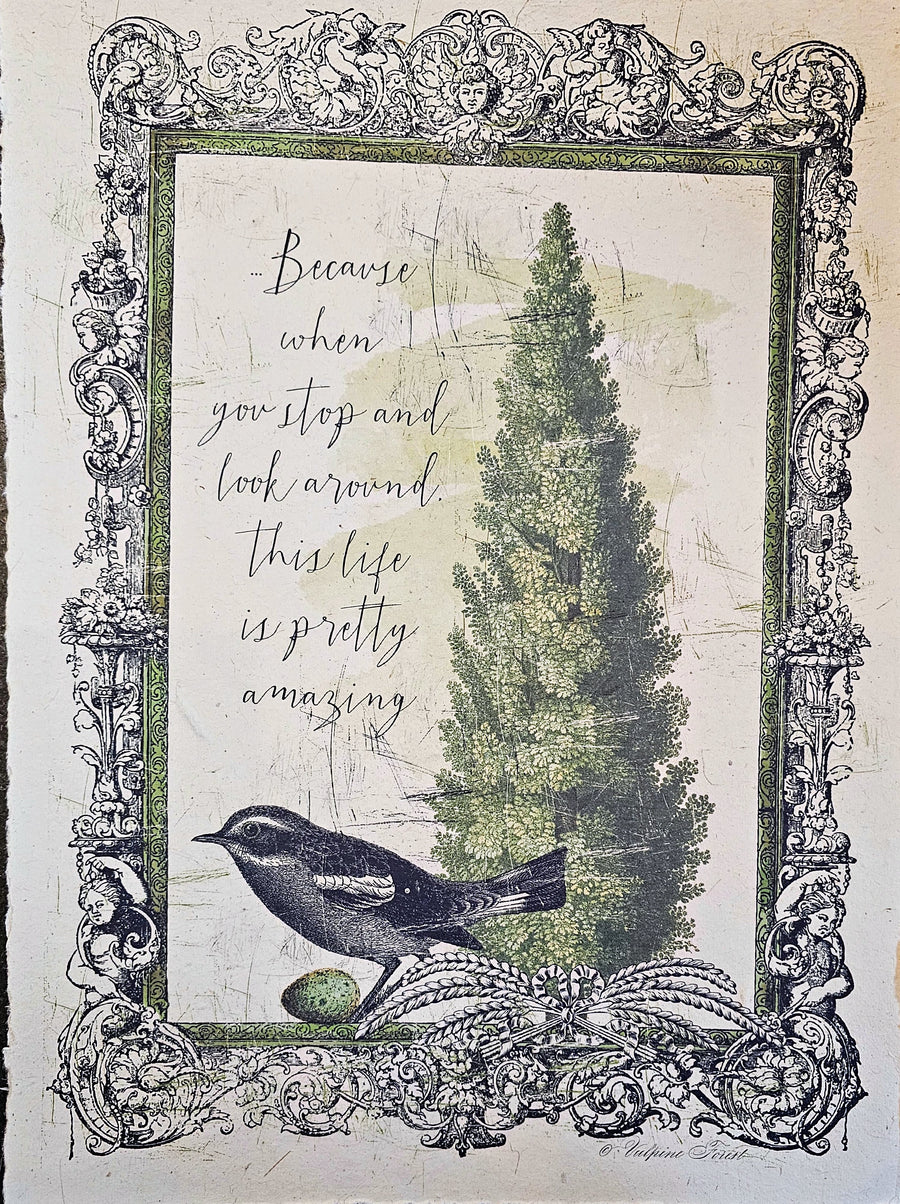 ... Because
when
you stop and
look around.
this life
is pretty
amazing
© Vulpine Forest